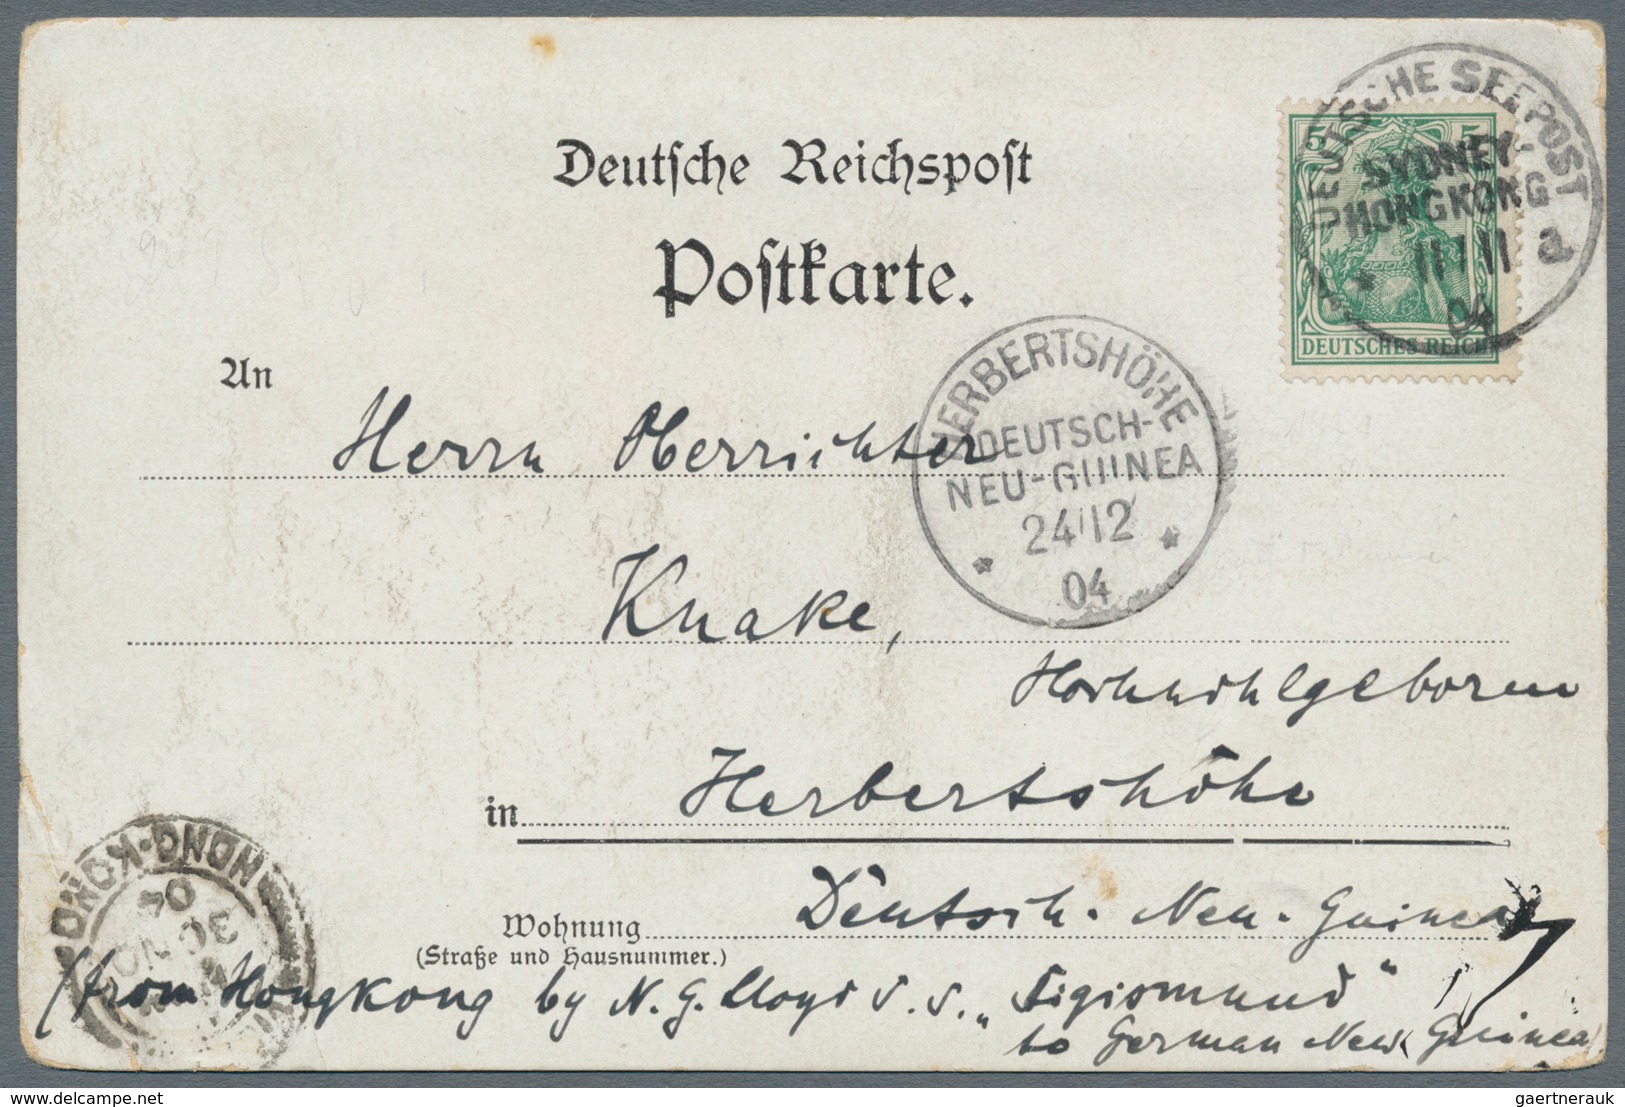 DEUTSCHE SEEPOST
SYDNEY-
HONGKONG
11/11 a
04
5 5
DEUTSCHES REICH
Deutsche Reichspost
Postkarte.
HERBERTSHÖHE
DEUTSCH-
NEU-GUINEA
24/12
04
An Herrn Oberrichter
Knake,
Hochwohlgeboren
in Herbertshöhe
Wohnung Deutsch-Neu-Guinea
(Straße und Hausnummer.)
HONG-KONG
04
30 NO
(from Hongkong by N. G. Lloyd S. S. „Sigismund"
to German New Guinea)
delcampe.net
gaertnerauk